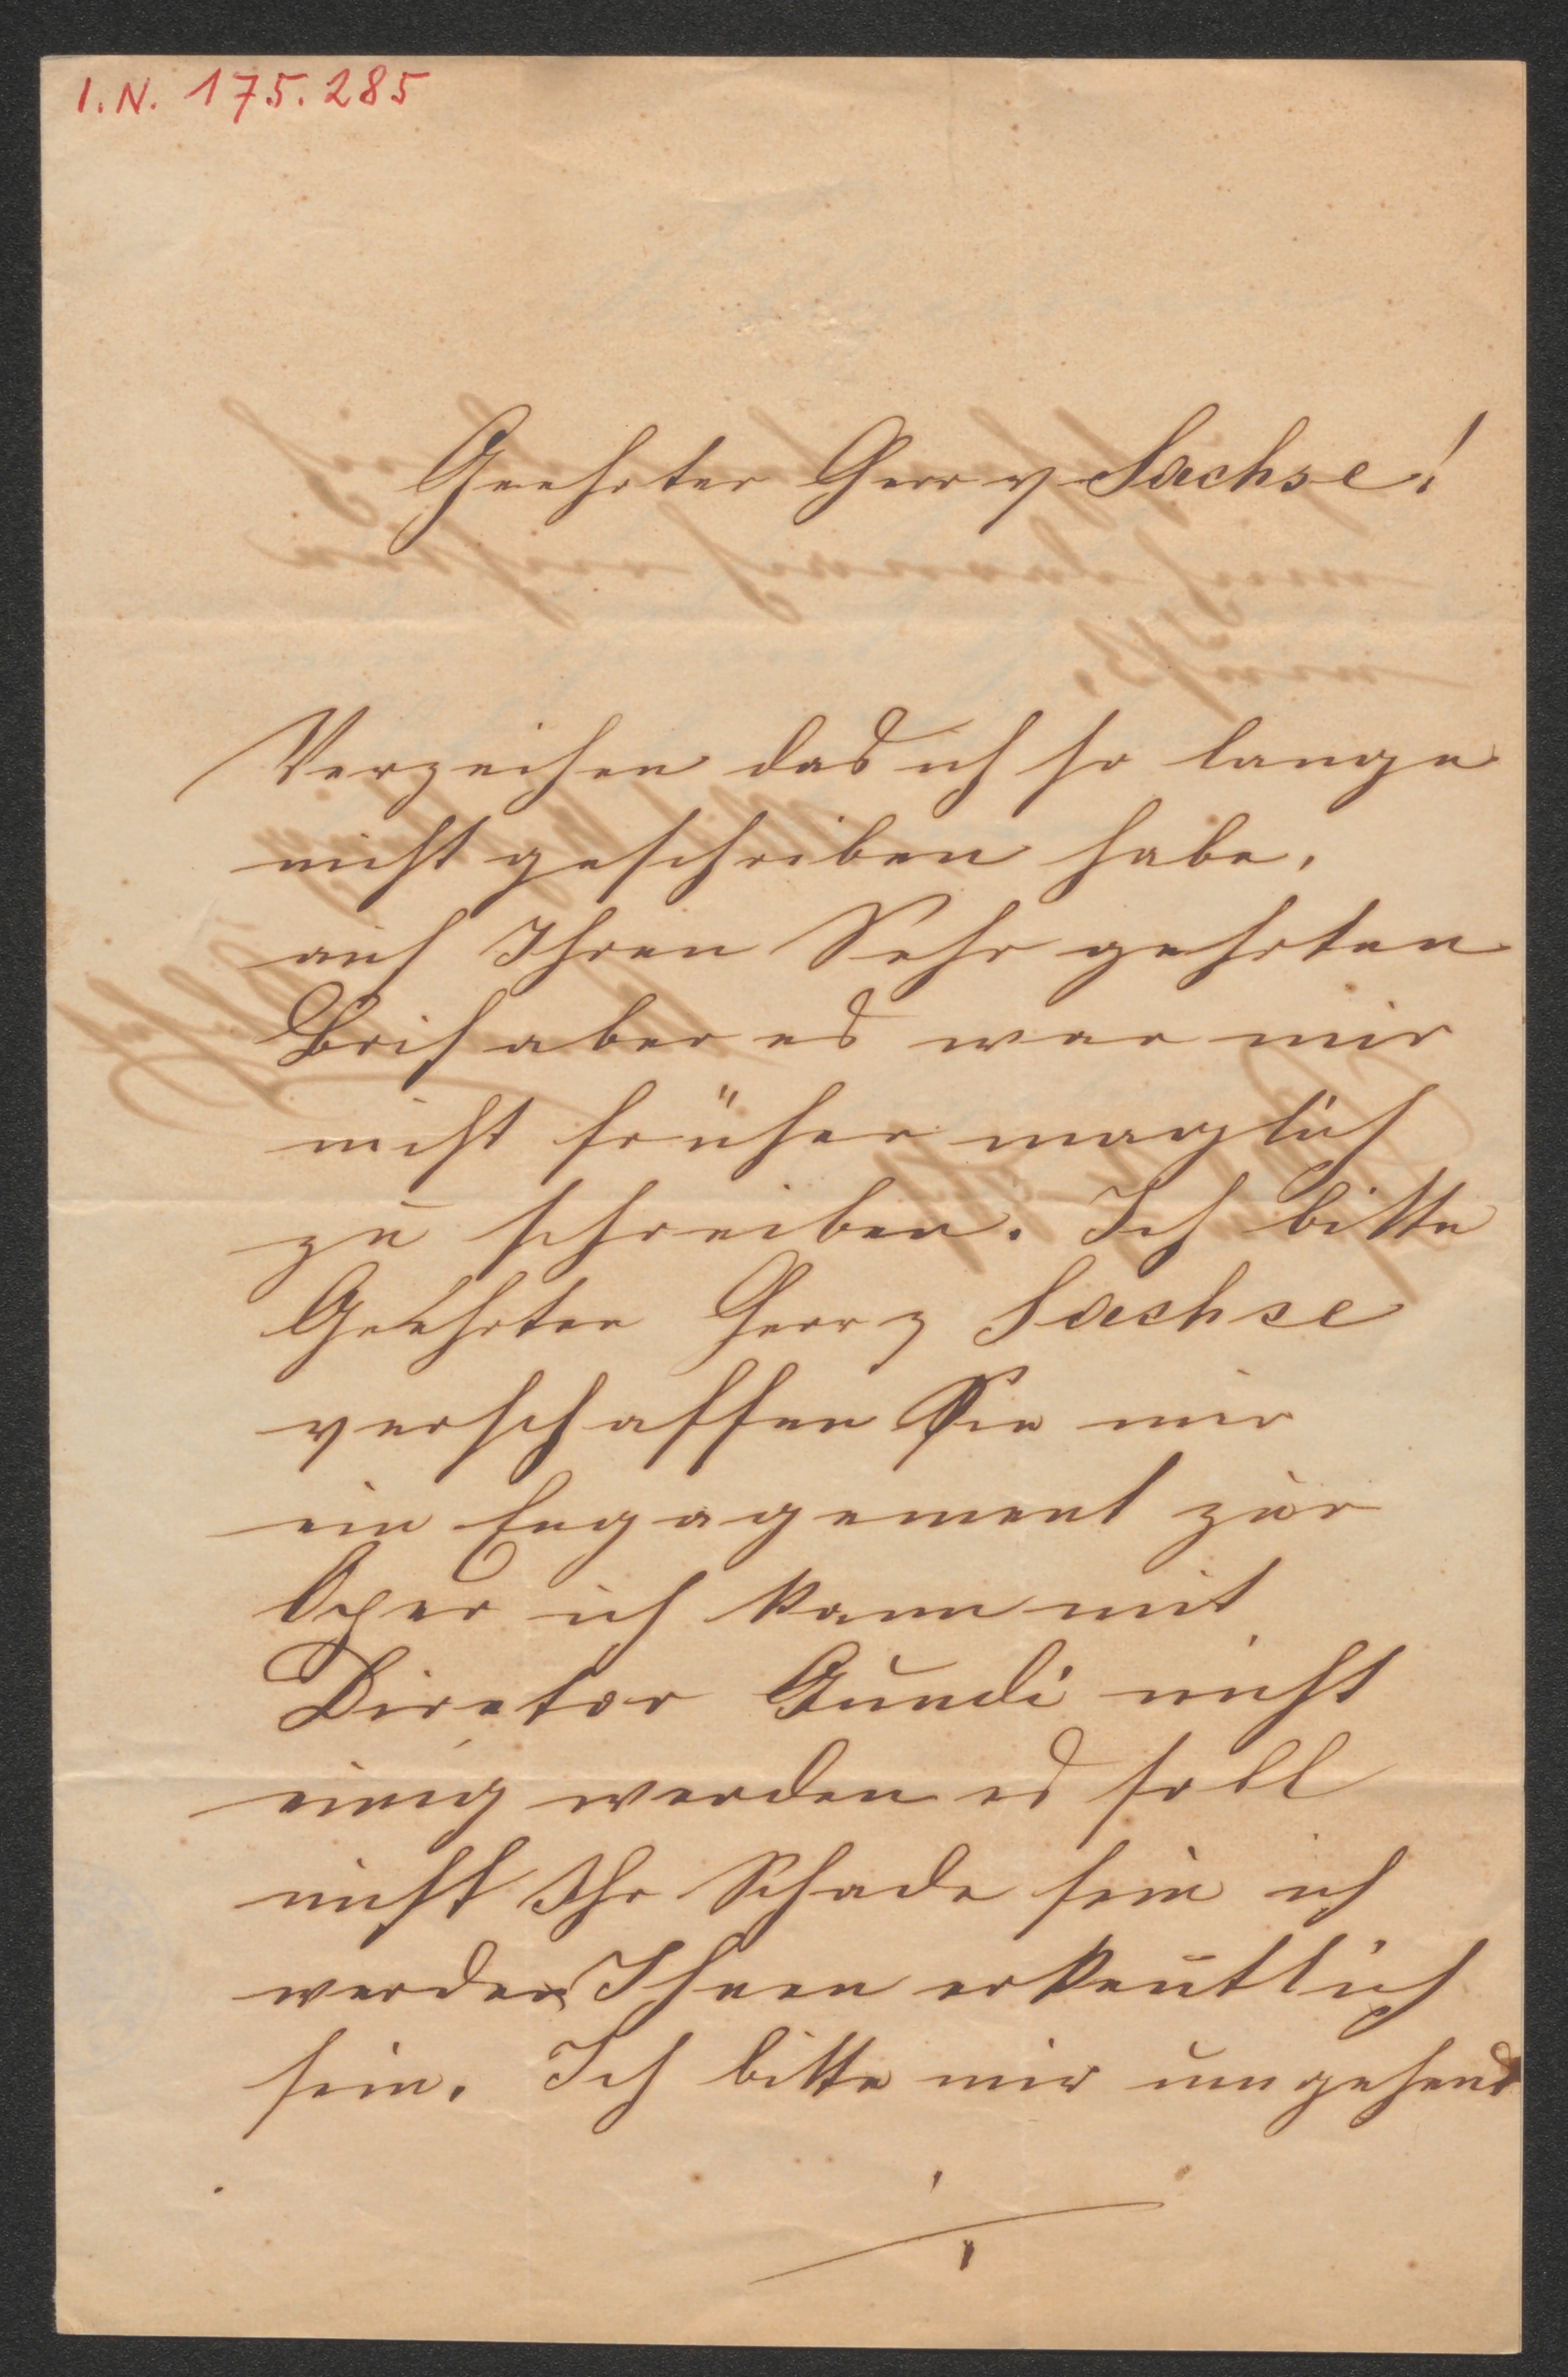 I.N. 175.285
Geehrter Herr v Sachse!
Verzeihen das ich so lange
nicht geschriben habe,
auf Ihren Sehr gehrten
Brif aber es war mir
nicht früher maglich
zu schreiben. Ich bitte
Geehrten Herr v Sachse
verschaffen Sie mir
ein Engagement zur
Oper ich kann mit
Diretor Gundi nicht
einig werden es soll
nicht Ihr Schade sein ich
werden Ihnen erkentlich
sein. Ich bitte mir umgehend